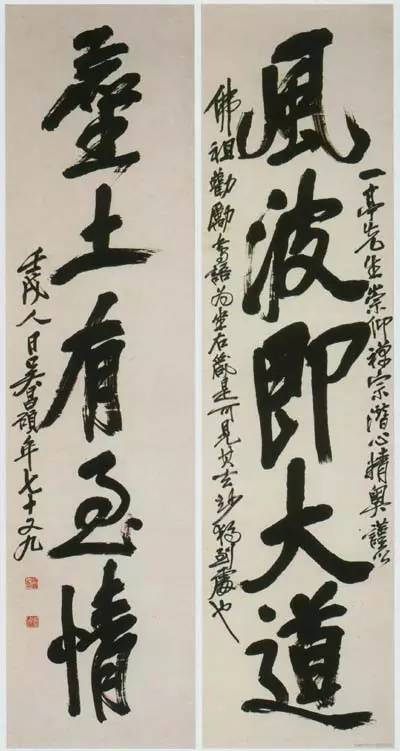 風波即大道
一亭先生崇仰禪宗潛心精奧謹以
佛祖勸勵語為坐右箴是可見其玄妙獨到處也
塵土有至情
壬戌人日吳昌碩年七十又九